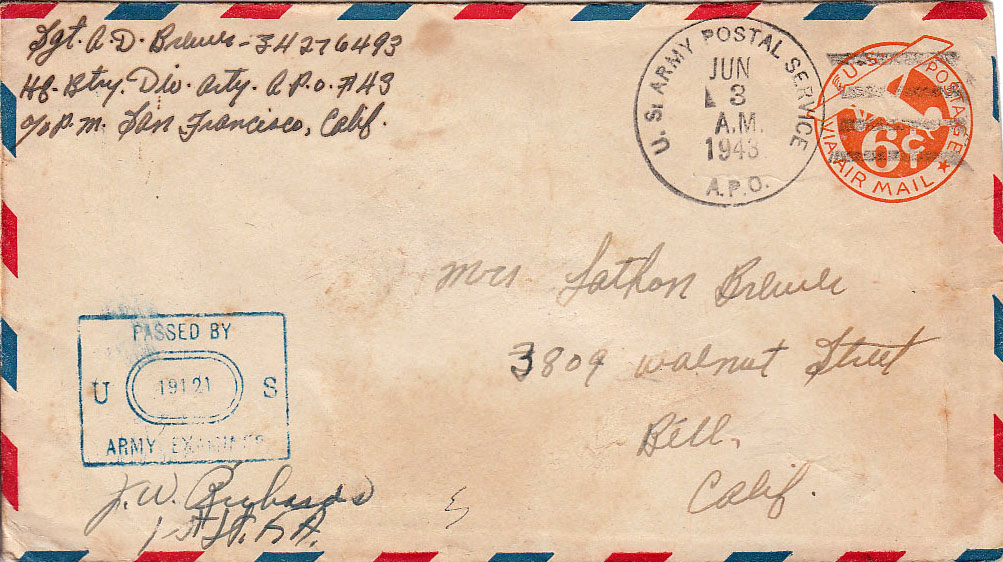 Sgt. A. D. Brewer - 34276493
Hq. Btry. Div. Arty. A.P.O. #43
c/o P.M. San Francisco, Calif.
U. S. ARMY POSTAL SERVICE
JUN
3
A.M.
1943
A.P.O.
U.S. POSTAGE
6¢
VIA AIR MAIL
Mrs Lathon Brewer
3809 Walnut Street
Bell,
Calif.
PASSED BY
U 19121 S
ARMY EXAMINER
J. W. Richards
1st Lt. F.A.